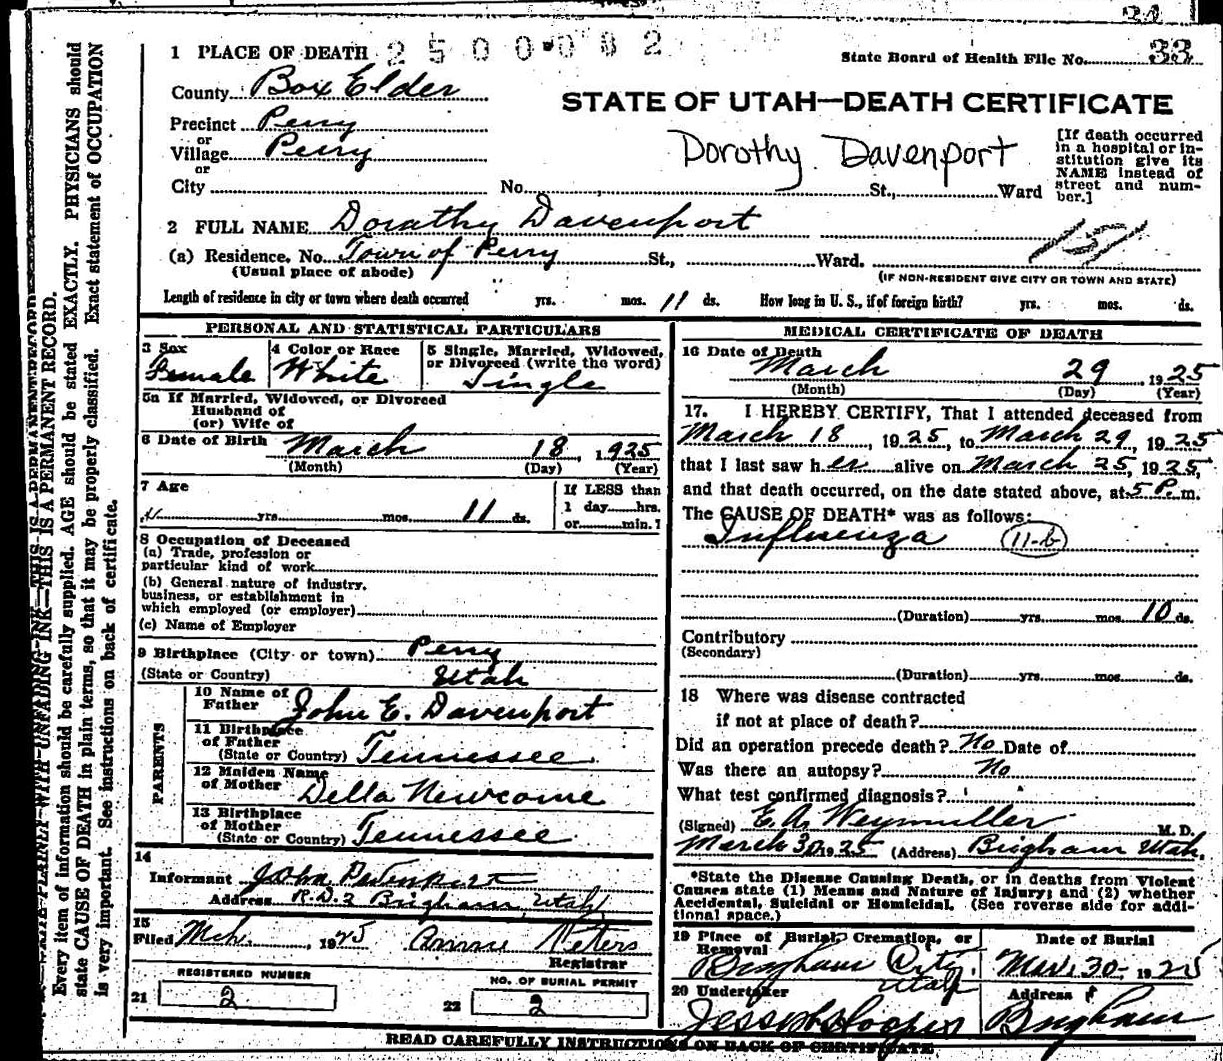 24
1 PLACE OF DEATH 2500082
State Board of Health File No. 33
County Box Elder
STATE OF UTAH—DEATH CERTIFICATE
Precinct Perry
or
Village Perry
or
City No. St., Ward
Dorothy Davenport
[If death occurred
in a hospital or in-
stitution give its
NAME instead of
street and num-
ber.]
2 FULL NAME Dorathy Davenport
(a) Residence. No. Town of Perry St., Ward.
(Usual place of abode)
(IF NON-RESIDENT GIVE CITY OR TOWN AND STATE)
Length of residence in city or town where death occurred yrs. mos. 11 ds. How long in U. S., if of foreign birth? yrs. mos. ds.
PERSONAL AND STATISTICAL PARTICULARS
3 Sex
Female
4 Color or Race
White
5 Single, Married, Widowed,
or Divorced (write the word)
Single
5a If Married, Widowed, or Divorced
Husband of
(or) Wife of
6 Date of Birth March 18, 1925
(Month) (Day) (Year)
7 Age
yrs. mos. 11 ds.
If LESS than
1 day hrs.
or min.?
8 Occupation of Deceased
(a) Trade, profession or
particular kind of work
(b) General nature of industry,
business, or establishment in
which employed (or employer)
(c) Name of Employer
9 Birthplace (City or town) Perry
(State or Country) Utah
PARENTS
10 Name of
Father John E. Davenport
11 Birthplace
of Father
(State or Country) Tennessee
12 Maiden Name
of Mother Della Newcome
13 Birthplace
of Mother
(State or Country) Tennessee
14
Informant John Davenport
Address R.D.2 Brigham, Utah
15
Filed Mch. , 1925 Annie Peters
Registrar
REGISTERED NUMBER
21 2
NO. OF BURIAL PERMIT
22 2
MEDICAL CERTIFICATE OF DEATH
16 Date of Death
March 29, 1925
(Month) (Day) (Year)
17. I HEREBY CERTIFY, That I attended deceased from
March 18, 1925, to March 29, 1925
that I last saw her alive on March 25, 1925,
and that death occurred, on the date stated above, at 5 P.m.
The CAUSE OF DEATH* was as follows:
Influenza 11-b
(Duration) yrs. mos. 10 ds.
Contributory
(Secondary)
(Duration) yrs. mos. ds.
18 Where was disease contracted
if not at place of death?
Did an operation precede death? No Date of
Was there an autopsy? No
What test confirmed diagnosis?
(Signed) E. A. Weymuller M. D.
March 30 1925 (Address) Brigham Utah.
*State the Disease Causing Death, or in deaths from Violent
Causes state (1) Means and Nature of Injury; and (2) whether
Accidental, Suicidal or Homicidal. (See reverse side for addi-
tional space.)
19 Place of Burial, Cremation, or
Removal
Brigham City,
Utah
Date of Burial
Mar. 30, 1925
20 Undertaker
Address
Brigham
READ CAREFULLY INSTRUCTIONS ON BACK OF CERTIFICATE
WRITE PLAINLY WITH UNFADING INK—THIS IS A PERMANENT RECORD.
Every item of information should be carefully supplied. AGE should be stated EXACTLY. PHYSICIANS should
state CAUSE OF DEATH in plain terms, so that it may be properly classified. Exact statement of OCCUPATION
is very important. See instructions on back of certificate.